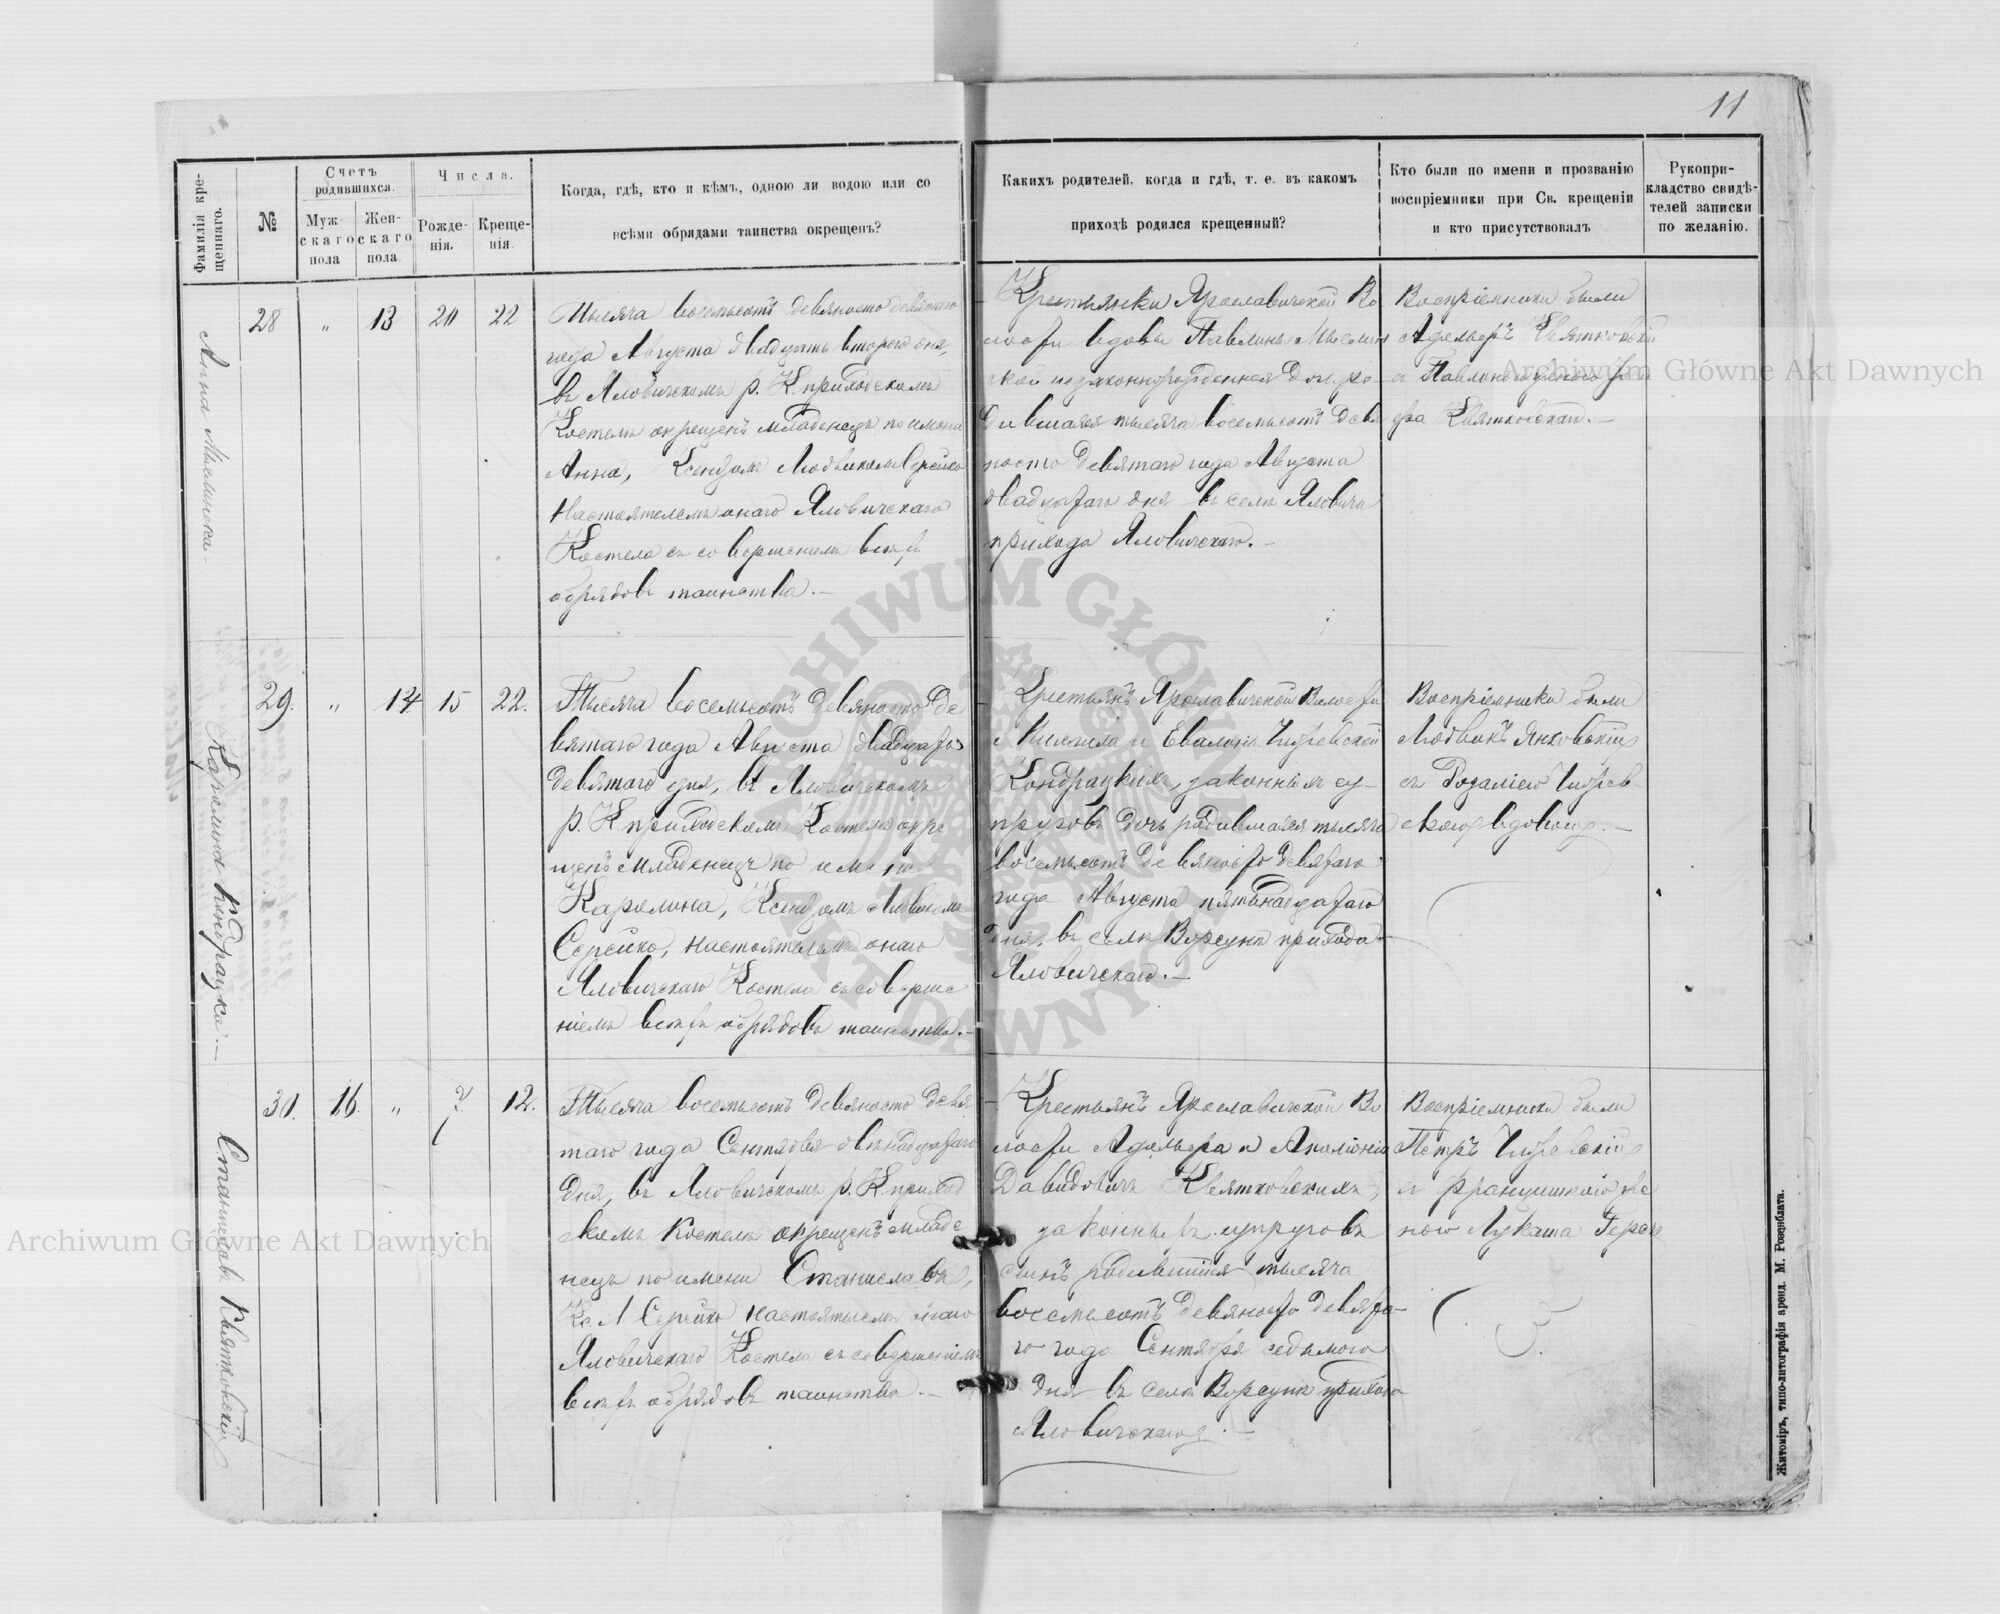 11
Фамилія кре-
щеннаго.
№
Счетъ
родившихся.
Муж-
скаго
пола
Жен-
скаго
пола.
Числа.
Рожде-
нія.
Креще-
нія.
Когда, гдѣ, кто и кѣмъ, одною ли водою или со
всѣми обрядами таинства окрещенъ?
Какихъ родителей, когда и гдѣ, т. е. въ какомъ
приходѣ родился крещенный?
Кто были по имени и прозванію
воспріемники при Св. крещеніи
и кто присутствовалъ
Рукопри-
кладство свидѣ-
телей записки
по желанію.
Анна
28 " 13 20 22
Тысяча восемьсотъ девяносто девятаго
года Августа двадцать втораго дня,
въ Яловичскомъ р. К приходскомъ
Костелѣ окрещенъ младенецъ по имени
Анна, Ксендзомъ Людвикомъ Серейко
Настоятелемъ онаго Яловичскаго
Костела съ совершеніемъ всѣхъ
обрядовъ таинства.—
Крестьянки Ярославичской Во
лости вдовы Павлины
незаконнорожденная дочь ро-
дившаяся тысяча восемьсотъ девя
носто девятаго года Августа
двадцатаго дня въ селѣ Яловичи
прихода Яловичскаго.—
Воспріемники были
Адольфъ Квятковскій
съ Павлиною женою
Квятковскаго.—
Каролина Кондрацка.—
29. " 14 15 22.
Тысяча восемьсотъ девяносто де
вятаго года Августа двадцать
девятаго дня, въ Яловичскомъ
р. К приходскомъ Костелѣ окре
щенъ младенецъ по имени
Каролина, Ксендзомъ Людвикомъ
Серейко, настоятелемъ онаго
Яловичскаго Костела съ соверше
ніемъ всѣхъ обрядовъ таинства.—
Крестьянъ Ярославичской Волости
и
Кондрацкихъ, законныхъ су-
пруговъ дочь родившаяся тысяча
восемьсотъ девяносто девятаго
года Августа пятьнадцатаго
дня, въ селѣ Ворсунь прихода
Яловичскаго.—
Воспріемники были
Людвикъ Янковскій
съ Розаліею
вдовою.—
Станиславъ Квятковскій
30. 16. " 7 12.
Тысяча восемьсотъ девяносто девя
таго года Сентября двѣнадцатаго
дня, въ Яловичскомъ р. К приход
скомъ Костелѣ окрещенъ младе
нецъ по имени Станиславъ,
Кс. Л Серейко настоятелемъ онаго
Яловичскаго Костела съ совершеніемъ
всѣхъ обрядовъ таинства.—
Крестьянъ Ярославичской Во
лости Адольфа и Аполоніи
Давидовичъ Квятковскихъ,
законныхъ супруговъ
сынъ родившійся тысяча
восемьсотъ девяносто девята-
го года Сентября седьмого
дня въ селѣ Ворсунь прихода
Яловичскаго.—
Воспріемники были
Петръ
съ Францишкою же
ною Лукаша
Житоміръ, типо-литографія аренд. М. Розенблата.
Archiwum Główne Akt Dawnych
Archiwum Główne Akt Dawnych
ARCHIWUM GŁÓWNE AKT DAWNYCH